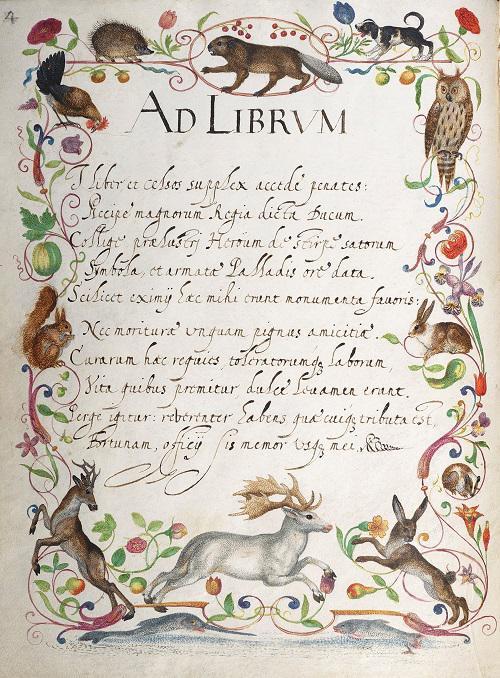 4
AD LIBRVM
I liber et celsos supplex accede penates:
Recipe magnorum Regia dicta Ducum.
Collige prælustrj Heroum de stirpe satorum
Symbola, et armatæ Palladis ore data.
Scilicet eximij hæc mihi erunt monumenta fauoris:
Nec moritura vnquam pignus amicitiæ.
Curarum hæc requies, toleratorumq laborum,
Vita quibus premitur dulce leuamen erant.
Perge igitur: reuerenter habens quæ cuiq tributa est,
Fortunam, officij sis memor vsq mei.